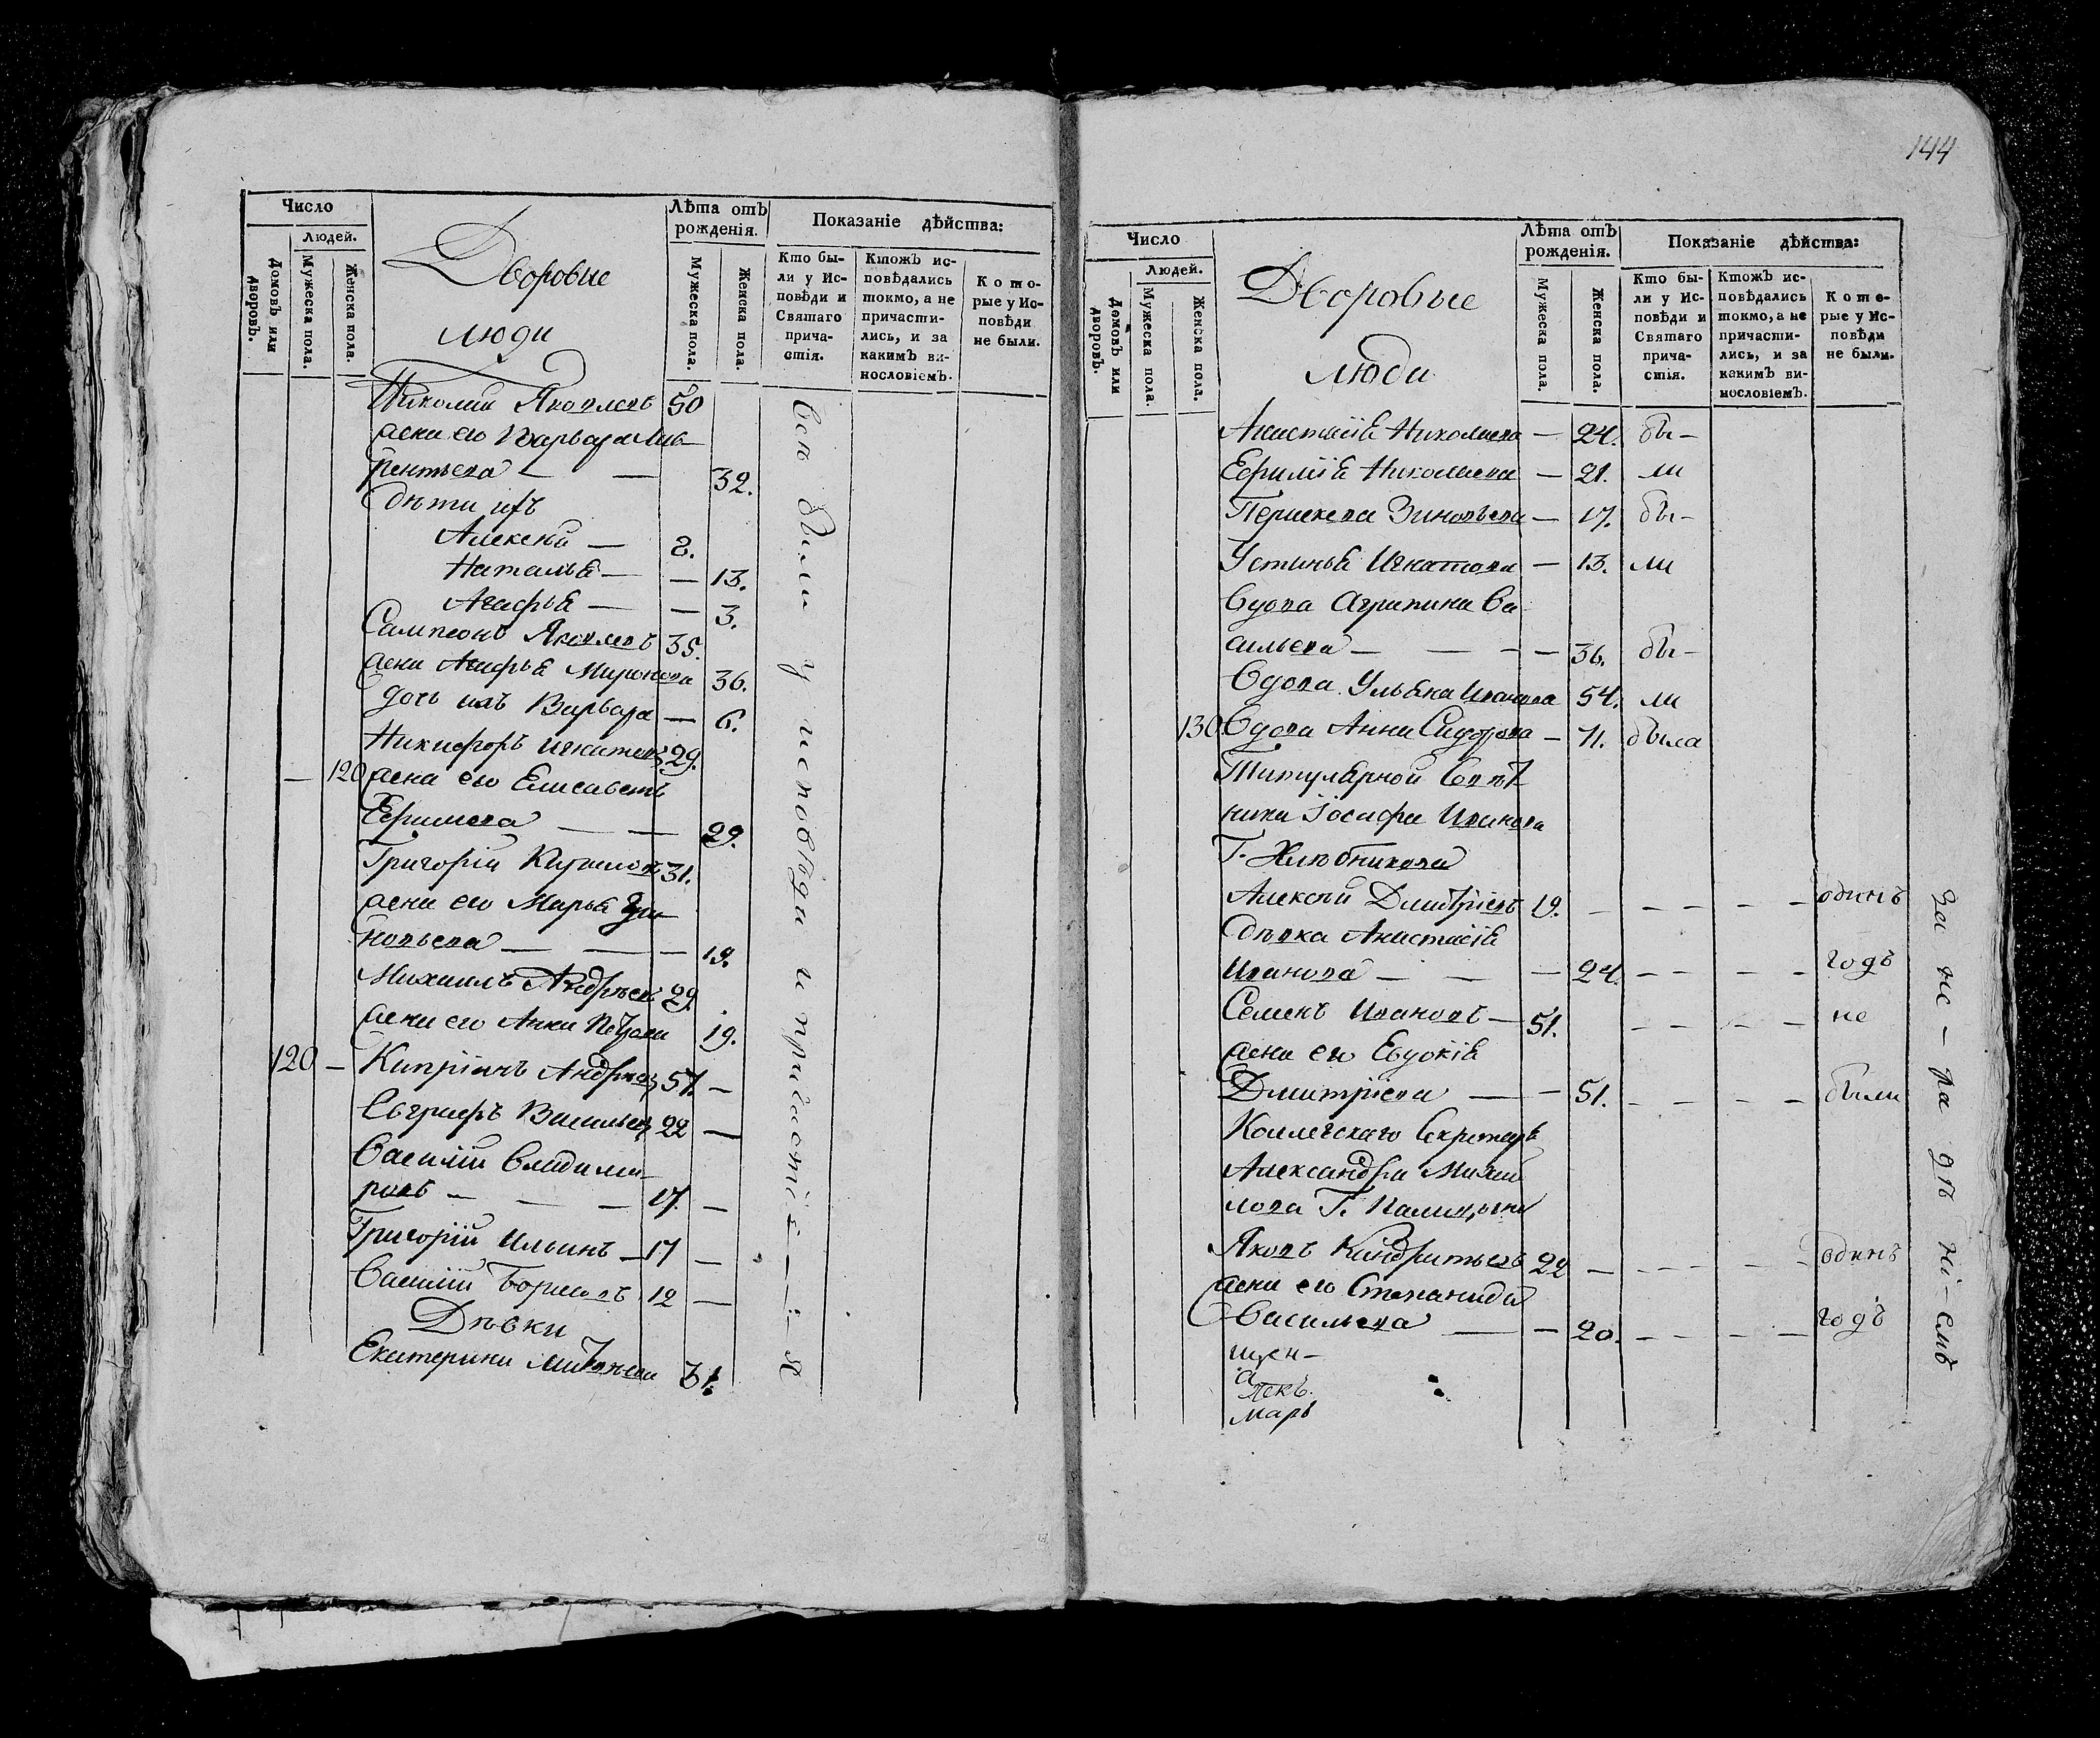 Число
Людей.
Домовъ или дворовъ.
Мужеска пола.
Женска пола.
Дворовые
люди
Лѣта отъ
рожденія.
Мужеска пола.
Женска пола.
Показаніе дѣйства:
Кто бы-
ли у Ис-
повѣди и
Святаго
прича-
стія.
Ктожъ ис-
повѣдались
токмо, а не
причасти-
лись, и за
какимъ ви-
нословіемъ.
Кото-
рые у Ис-
повѣди
не были.
Николай Яковлевъ 50
жена его Варвара Лав
рентьева — — 32.
дѣти ихъ
Алексей — 8.
Наталья — — 13.
Агафья — — 3.
Сампсонъ Яковлевъ 35.
жена Агафья Миронова 36.
дочь ихъ Варвара — 6.
Никифоръ Игнатьевъ 29.
— 120 жена его Елисавета
Ефимова — — 29.
Григорій Кириловъ 31.
жена его Марья Зи
новьева — — — 19.
Михаилъ Андреевъ 29.
жена его Анна Петрова 19.
120 — Кипріянъ Андреевъ 57. —
Евграфъ Васильевъ 22 —
Василій Владими
ровъ — — — 17. —
Григорій Ильинъ — 17 —
Василій Борисовъ 12 —
Дѣвки
Екатерина Матвѣева 31.
всѣ были у исповѣди и причастія
144
Число
Людей.
Домовъ или дворовъ.
Мужеска пола.
Женска пола.
Дворовые
люди
Лѣта отъ
рожденія.
Мужеска пола.
Женска пола.
Показаніе дѣйства:
Кто бы-
ли у Ис-
повѣди и
Святаго
прича-
стія.
Ктожъ ис-
повѣдались
токмо, а не
причасти-
лись, и за
какимъ ви-
нословіемъ.
Кото-
рые у Ис-
повѣди
не были.
Анастасія Николаева — 24. бы-
Ефимія Николаева — 21. ли
Парасковья Зиновьева — 17. бы-
Устинья Игнатова — 13. ли
Вдова Агрипина Ва
сильева — — — — 36. бы-
Вдова Ульяна Иванова 54. ли
130 Вдова Анна Сидорова — 71. была
Титулярной Совѣт
ника Іосифа Иванова
Г. Хлѣбникова
Алексѣй Дмитріевъ 19. — — — — — одинъ
дѣвка Анастасія
Иванова — — — 24. — — — — годъ
Семенъ Ивановъ — 51. — — — — не
жена его Евдокія
Дмитріева — — 51. — — — — были
Коллегскаго Секретаря
Александра Михай
лова Г. Палицына
Яковъ Кондратьевъ 22 — — — — — одинъ
жена его Степанида
Васильева — — 20. — — — — годъ
за не-ра дѣ ні-емъ